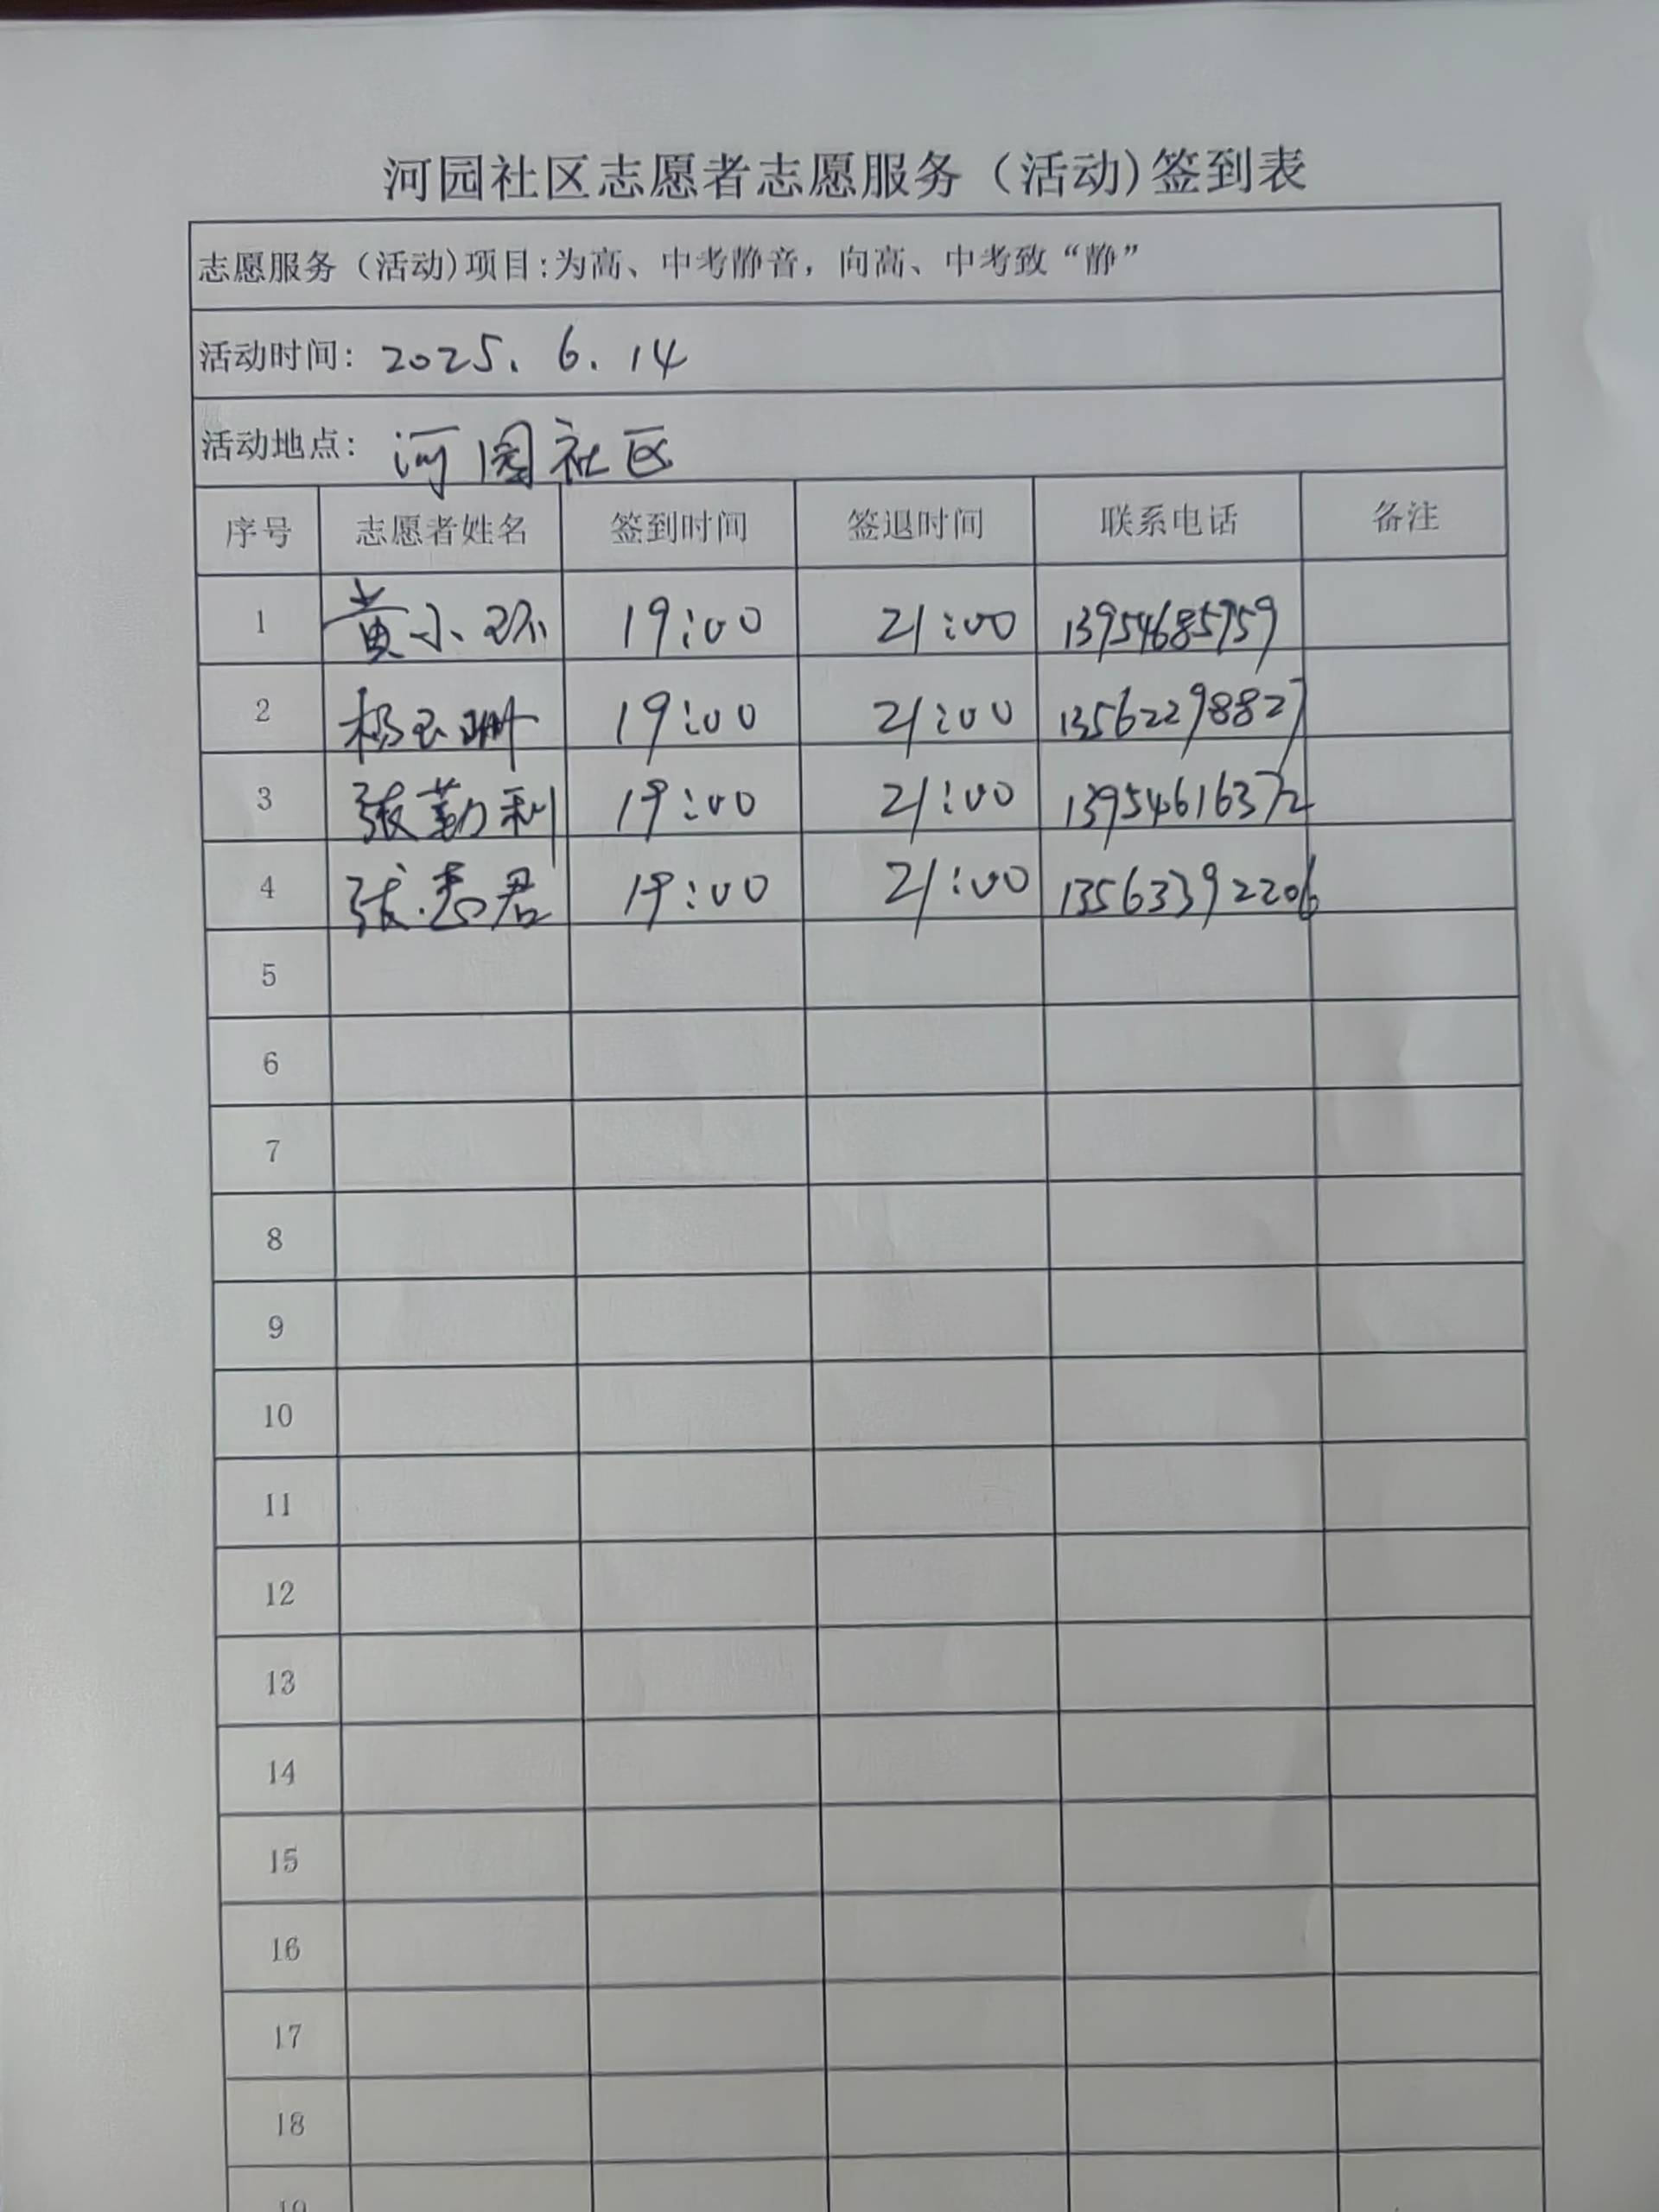 河园社区志愿者志愿服务（活动)签到表
志愿服务（活动)项目:为高、中考静音，向高、中考致“静”
活动时间: 2025. 6. 14
活动地点: 河园社区
序号 志愿者姓名 签到时间 签退时间 联系电话 备注
1 黄小环 19:00 21:00 13954685759
2 杨玉珊 19:00 21:00 13562298827
3 张勤利 19:00 21:00 13954616372
4 张秀君 19:00 21:00 13563392206
5
6
7
8
9
10
11
12
13
14
15
16
17
18
19